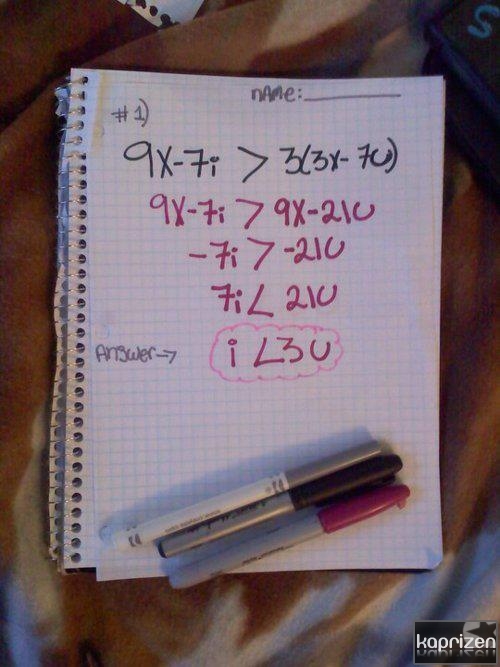 name:
#1)
9x-7i > 3(3x-7u)
9x-7i > 9x-21u
-7i > -21u
7i < 21u
Answer→ i <3 u
kaprizen